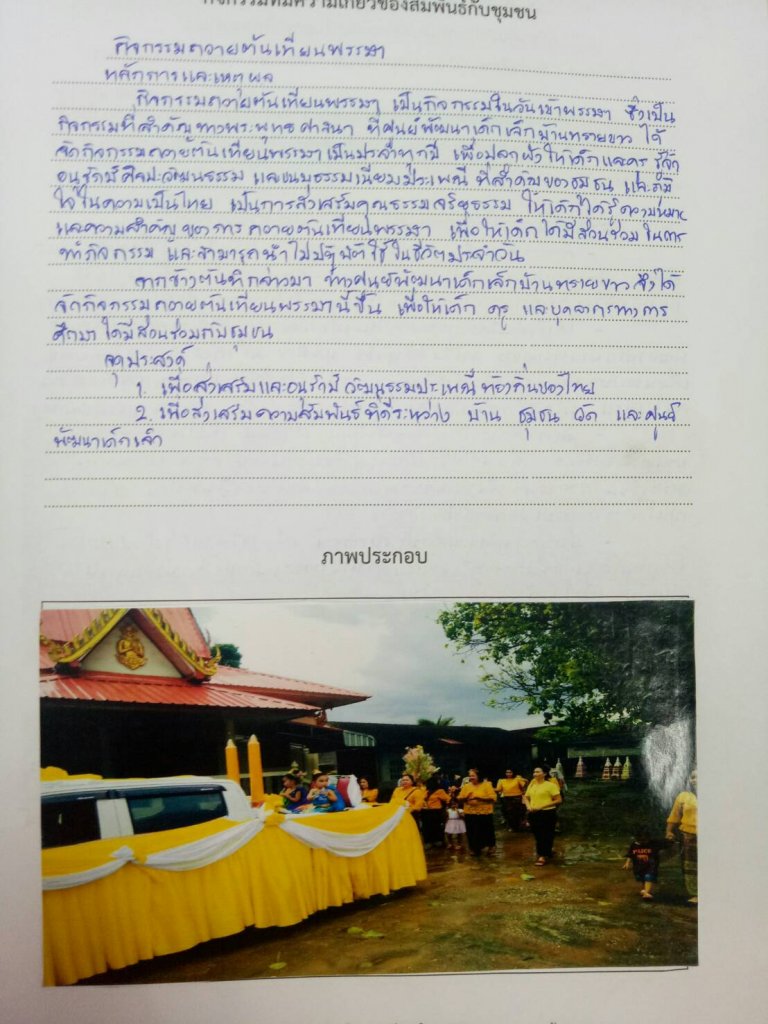 กิจกรรมที่มีความเกี่ยวข้องสัมพันธ์กับชุมชน
กิจกรรมถวายต้นเทียนพรรษา
หลักการและเหตุผล
กิจกรรมถวายต้นเทียนพรรษา เป็นกิจกรรมในวันเข้าพรรษา ซึ่งเป็น
กิจกรรมที่สำคัญทางพระพุทธศาสนา ที่ศูนย์พัฒนาเด็กเล็กบ้านทรายขาว ได้
จัดกิจกรรมถวายต้นเทียนพรรษาเป็นประจำทุกปี เพื่อปลูกฝังให้เด็กและครู รู้จัก
อนุรักษ์ศิลปะวัฒนธรรม และขนบธรรมเนียมประเพณี ที่สำคัญของชุมชน และภูมิ
ใจในความเป็นไทย เป็นการส่งเสริมคุณธรรมจริยธรรม ให้เด็กได้รู้ความหมาย
และความสำคัญของการถวายต้นเทียนพรรษา เพื่อให้เด็กได้มีส่วนร่วมในการ
ทำกิจกรรม และสามารถนำไปปฏิบัติใช้ในชีวิตประจำวัน
จากข้างต้นที่กล่าวมา ทางศูนย์พัฒนาเด็กเล็กบ้านทรายขาว จึงได้
จัดกิจกรรมถวายต้นเทียนพรรษานี้ขึ้น เพื่อให้เด็ก ครู และบุคลากรทางการ
ศึกษา ได้มีส่วนร่วมกับชุมชน
จุดประสงค์
1. เพื่อส่งเสริมและอนุรักษ์วัฒนธรรมประเพณีท้องถิ่นของไทย
2. เพื่อส่งเสริมความสัมพันธ์ที่ดีระหว่าง บ้าน ชุมชน วัด และศูนย์
พัฒนาเด็กเล็ก
ภาพประกอบ